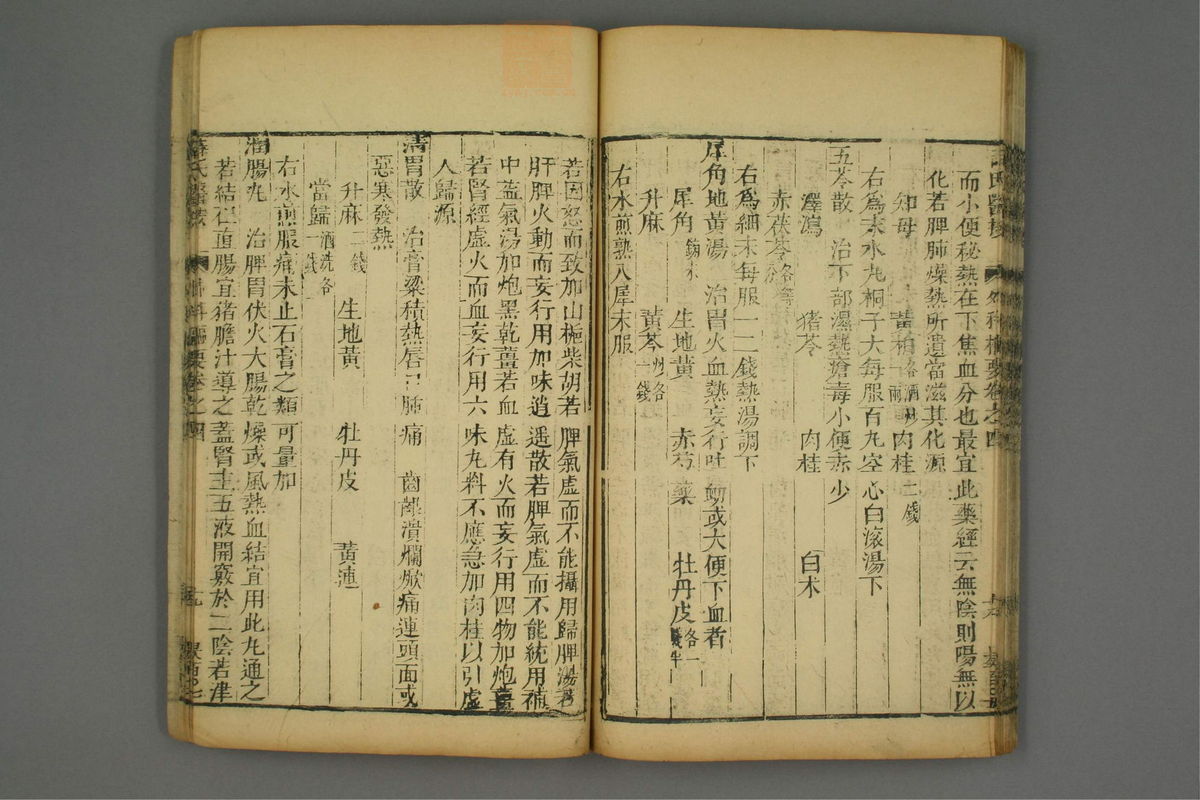 而小便秘熱在下焦血分也最宜此藥經云無陰則陽無以
化若脾肺燥熱所遺當滋其化源
知母 黃柏各酒炒一兩 肉桂二錢
右為末水丸桐子大每服百丸空心白滾湯下
五苓散 治下部濕熱瘡毒小便赤少
澤瀉 猪苓 肉桂 白朮
赤茯苓各等分
右為細末每服一二錢熱湯調下
犀角地黃湯 治胃火血熱妄行吐衂或大便下血者
犀角鎊末 生地黃 赤芍藥 牡丹皮各一錢半
升麻 黃芩炒各一錢
右水煎熟入犀末服
若因怒而致加山梔柴胡若脾氣虛而不能攝用歸脾湯若
肝脾火動而妄行用加味逍遥散若脾氣虛而不能統用補
中益氣湯加炮黑乾薑若血虛有火而妄行用四物加炮薑
若腎經虛火而血妄行用六味丸料不應急加肉桂以引虛
人歸源
清胃散 治膏粱積熱唇口肺痛 齒齦潰爛焮痛連頭面或
惡寒發熱
升麻二錢 生地黃 牡丹皮 黃連
當歸酒洗各一錢
右水煎服痛未止石膏之類可量加
潤腸丸 治脾胃伏火大腸乾燥或風熱血結宜用此丸通之
若結在直腸宜猪膽汁導之蓋腎主五液開竅於二陰若津